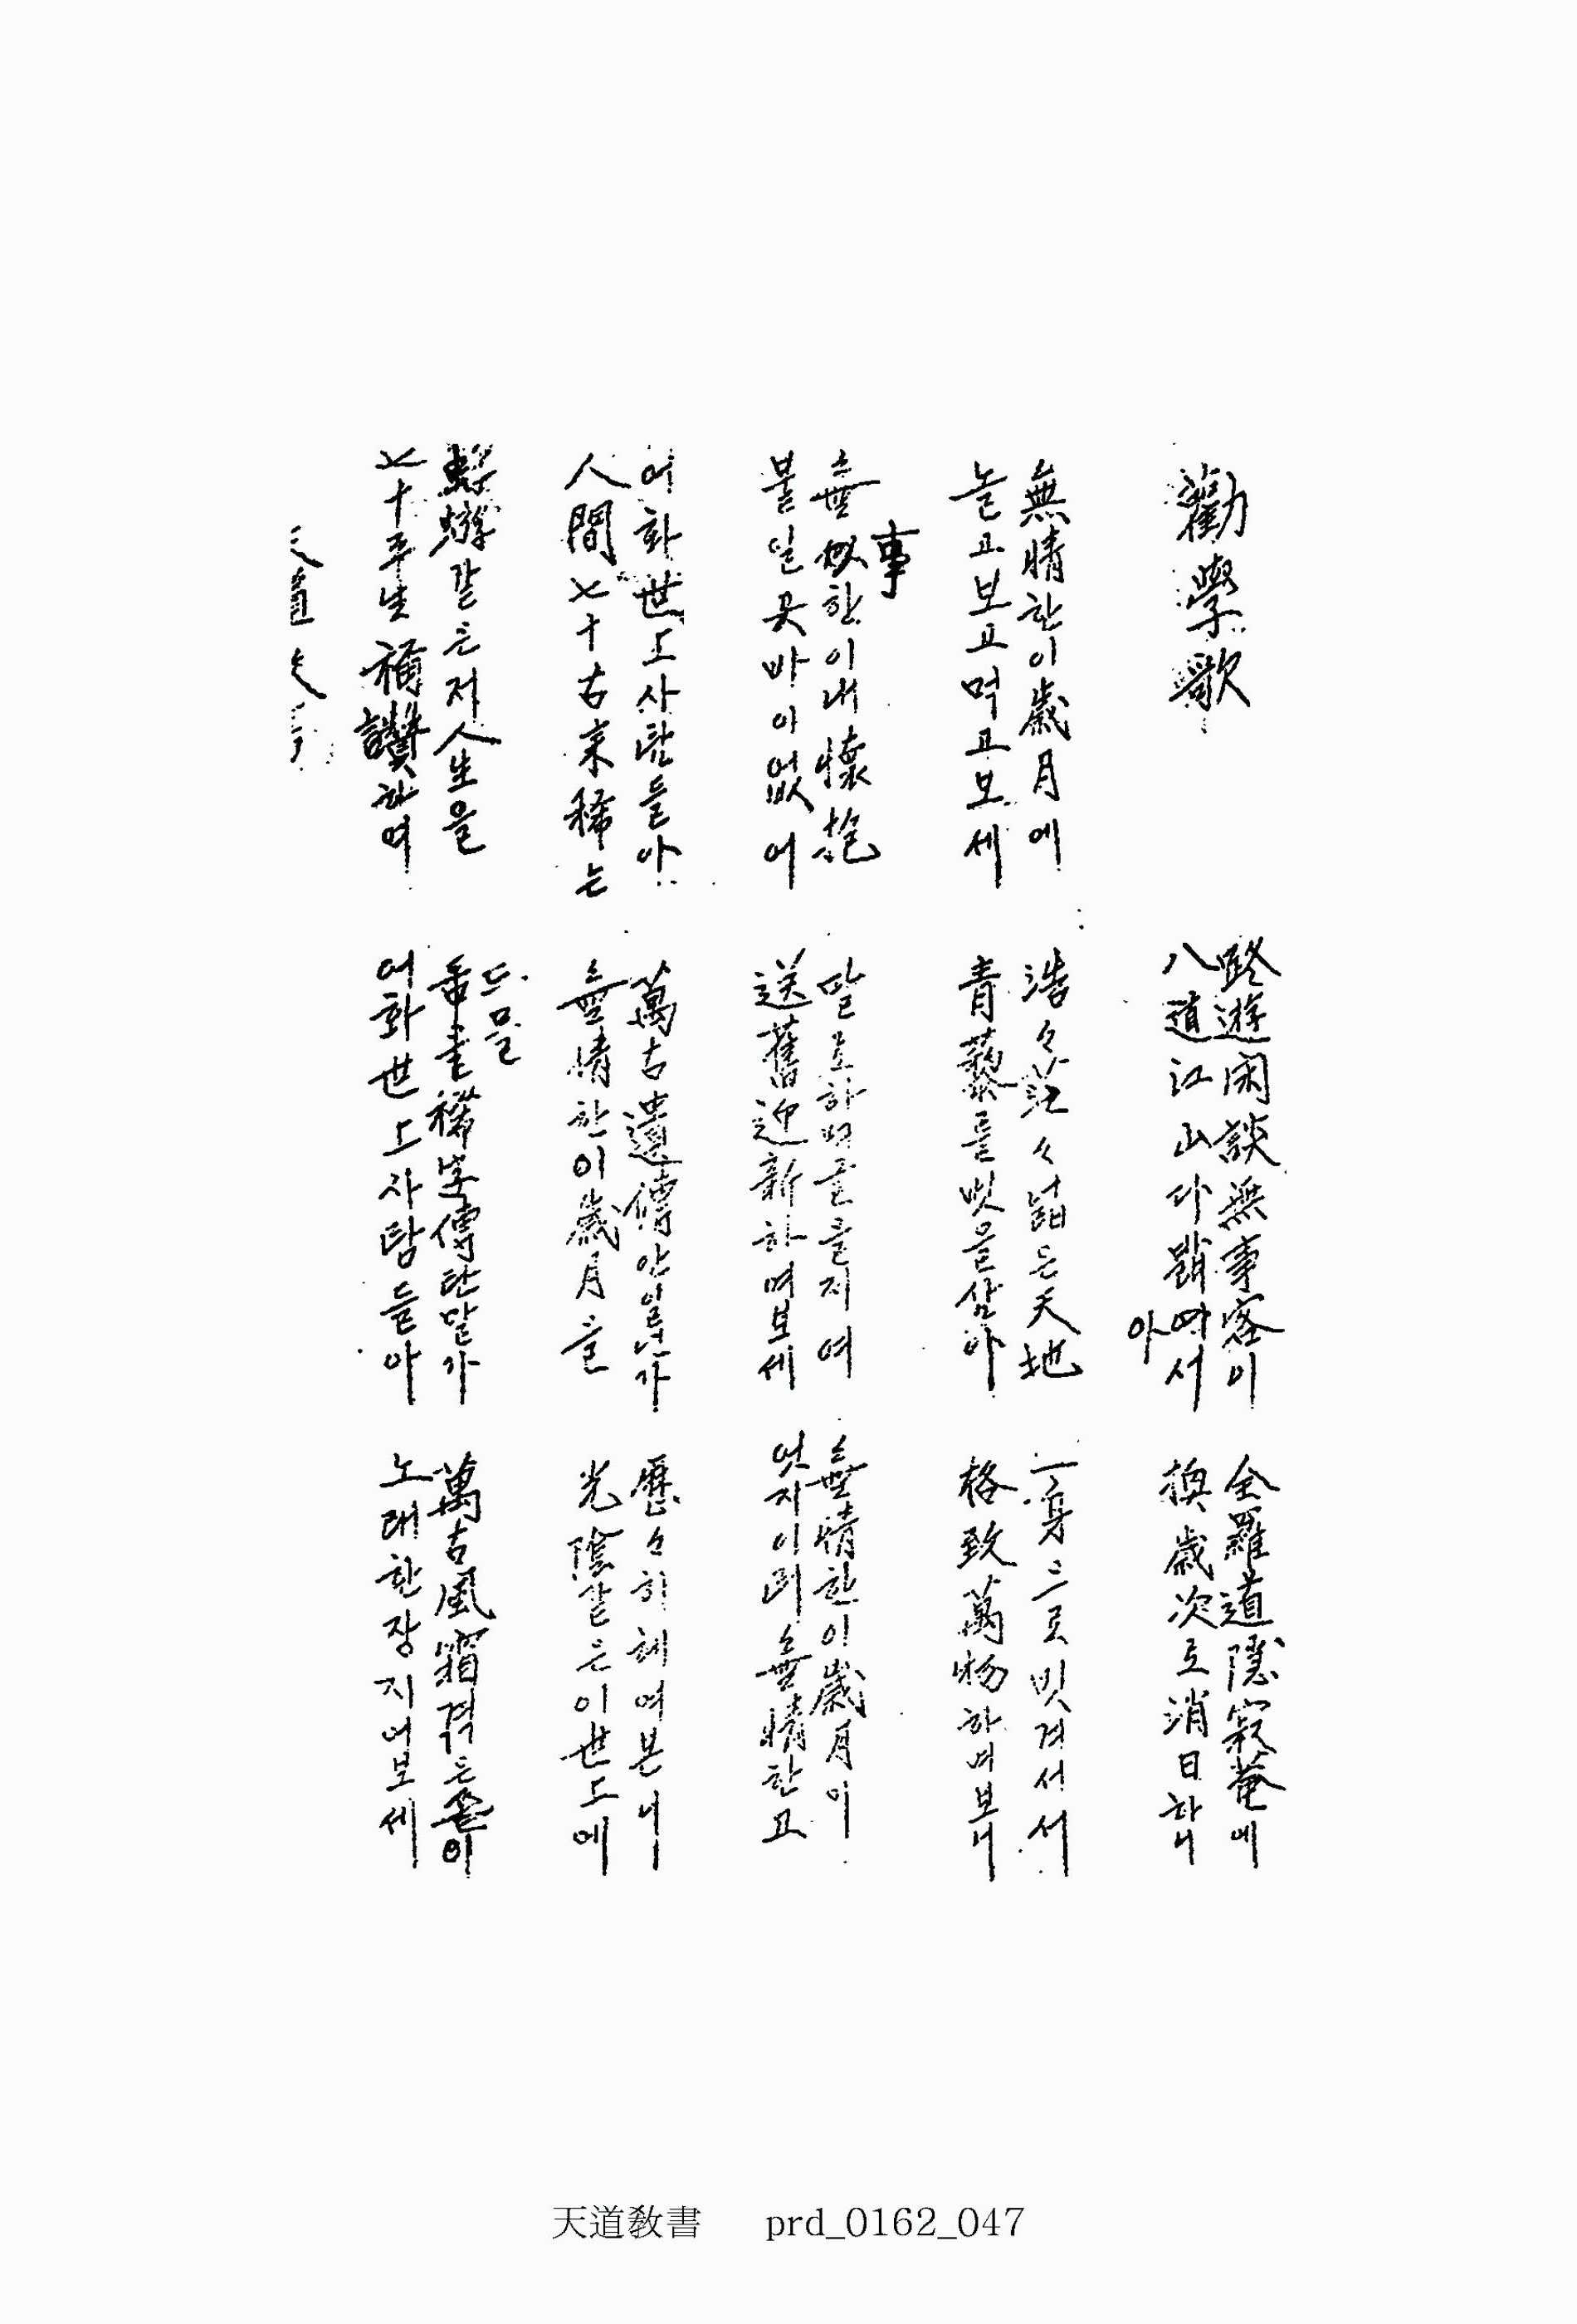 勸學歌
路遊閑談無事客이
八道江山다踏여서
아
全羅道隱寂菴에
換歲次로消日하니
無情한이歲月에
놀고보고먹고보세
浩々茫々넓은天地
青藜를벗을삼아
一身으로빗겨서서
格致萬物하며보니
事
無似한이내懷抱
붙일곳바이없어
말로하며글을지여
送舊迎新하며보세
無情한이歲月이
엇지이리無情한고
어화世上사람들아
人間七十古來稀는
萬古遺傳안일넌가
無情한이歲月을
歷々히헤여본니
光陰같은이世上에
蜉蝣같은저人生을
七十平生稱讚하여
드믈
稀字傳탄말가
어화世上사람들아
萬古風霜격은손이
노래한장지어보세
天道敎書 prd_0162_047